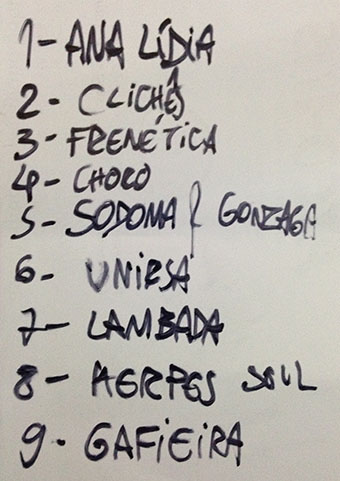 1- ANA LÍDIA
2- CLICHÊS
3- FRENÉTICA
4- CHORO
5- SODOMA & GONZAGA
6- UNIRSA
7- LAMBADA
8- HERPES SOUL
9- GAFIEIRA